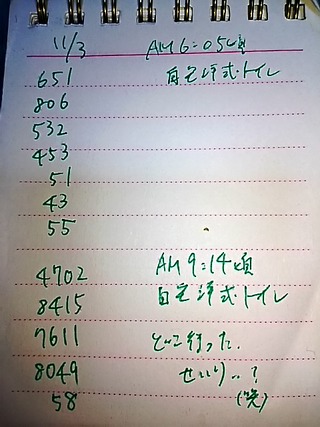 11/3 AM6:05頃
651 自宅洋式トイレ
806
532
453
51
43
55
4702 AM9:14頃
8415 自宅洋式トイレ
7611 どこ行った、
8049 せいり‥?
58 (笑)